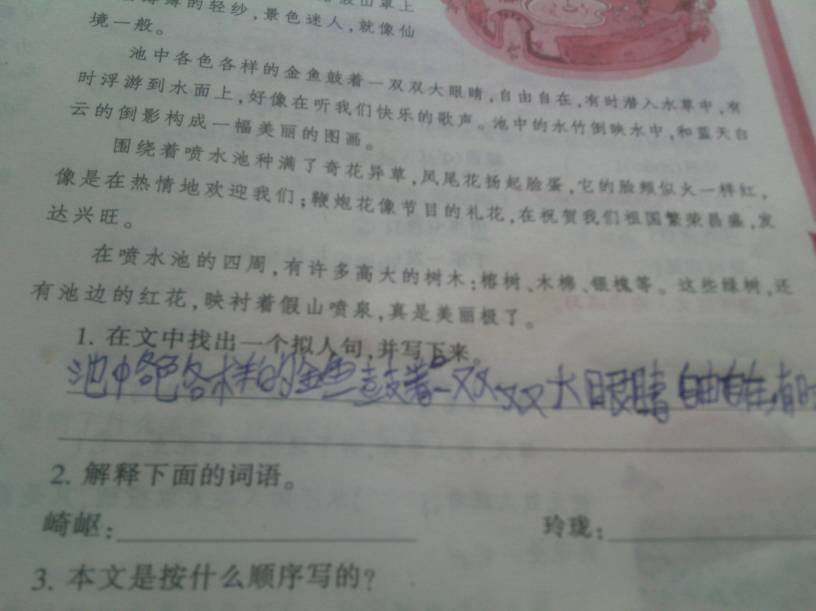 的轻纱，景色迷人，就像仙
境一般。
池中各色各样的金鱼鼓着一双双大眼睛，自由自在，有时潜入水草中，有
时浮游到水面上，好像在听我们快乐的歌声。池中的水竹倒映水中，和蓝天白
云的倒影构成一幅美丽的图画。
围绕着喷水池种满了奇花异草，凤尾花扬起脸蛋，它的脸颊似火一样红，
像是在热情地欢迎我们；鞭炮花像节目的礼花，在祝贺我们祖国繁荣昌盛，发
达兴旺。
在喷水池的四周，有许多高大的树木：榕树、木棉、银槐等。这些绿树，还
有池边的红花，映衬着假山喷泉，真是美丽极了。
1. 在文中找出一个拟人句，并写下来。
池中各色各样的金鱼鼓着一双双大眼睛 自由自在，有时
2. 解释下面的词语。
崎岖： 玲珑：
3. 本文是按什么顺序写的？